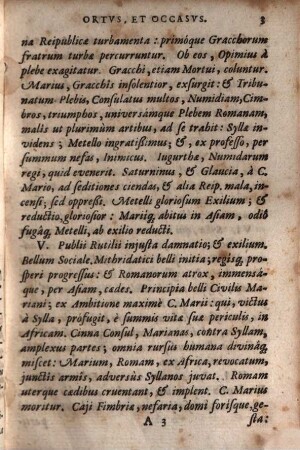 ORTVS, ET OCCASVS. 3
næ Reipùblicæ turbamenta: primóque Gracchorum
fratrum turbæ percurruntur. Ob eos, Opimius à
plebe exagitatur. Gracchi, etiam Mortui, coluntur.
Marius, Gracchis insolentior, exsurgit: & Tribu-
natum Plebis, Consulatus multos, Numidiam, Cim-
bros, triumphos, universámque Plebem Romanam,
malis ut plurimùm artibus, ad se trahit: Syllæ in-
videns; Metello ingratissimus; &, ex professo, per
summum nefas, Inimicus. Iugurthæ, Numidarum
regi, quid evenerit. Saturninus, & Glaucia, à C.
Mario, ad seditiones ciendas, & alia Reip. mala, in-
censi; sed oppressi. Metelli gloriosum Exilium; &
reductio, gloriosior: Mariiq́, abitu in Asiam, odio
fugáq́, Metelli, ab exilio reducti.
V. Publii Rutilii injusta damnatio; & exilium.
Bellum Sociale. Mithridatici belli initia; regisq́, pro-
speri progressus: & Romanorum atrox, immensá-
que, per Asiam, cædes. Principia belli Civilis Ma-
riani; ex Ambitione maximè C. Marii: qui, victus
à Sylla, profugit, è summis vitæ suæ periculis, in
Africam. Cinna Consul, Marianas, contra Syllam,
amplexus partes; omnia rursus humana divináq́,
miscet: Marium, Romam, ex Africa, revocatum,
junctis armis, adversùs Syllanos juvat. Romam
uterque cædibus cruentant, & implent. C. Marius
moritur. Caji Fimbriæ, nefaria, domi forísque, ge-
A 3 sta: